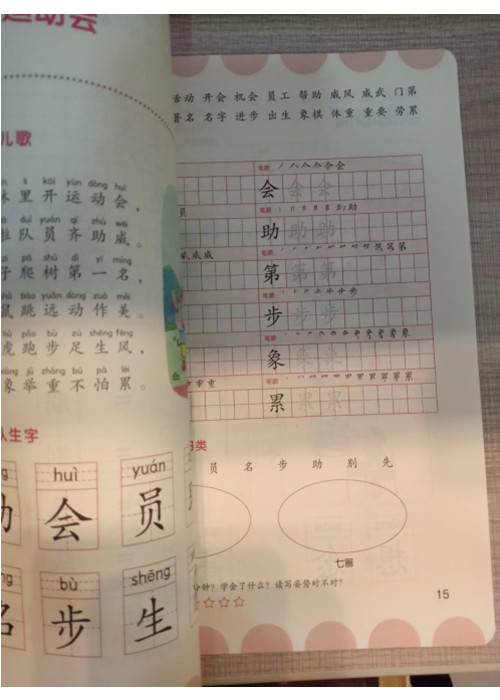 运动会
儿歌
lǐ kāi yùn dòng huì
里开运动会，
duì yuán qí zhù wēi
队员齐助威。
pá shù dì yī míng
子爬树第一名，
tiào yuǎn dòng zuò měi
鼠跳远动作美。
pǎo bù zú shēng fēng
虎跑步足生风，
jǔ zhòng bù pà lèi
象举重不怕累。
生字
huì yuán
会 员
bù shēng
步 生
活动 开会 机会 员工 帮助 威风 威武 门第
著名 名字 进步 出生 象棋 体重 重要 劳累
笔顺
会 会 会
笔顺
助 助 助
笔顺
第 第 第
笔顺
步 步 步
笔顺
象
笔顺
累 累 累
归类
员 名 步 助 别 先
七画
分钟？学会了什么？读写姿势对不对？
☆☆☆☆
15